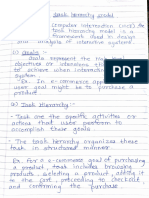 Task hierarchy model
Computer interaction (HCI) the
task hierarchy model is a
framework used in design
and analysis of interactive systems.
1) Goals :-
Goals represent the high level
objectives or intensions that
achieve when interaction
system.
Ex. In e-commerce
goal could be to purchase a
product
2) Task Hierarchy :-
- Task are the specific activities or
actions that user perform to
accomplish these goals
- The task hierarchy organizes these
tasks in structured
Ex. For a e-commerce goal of purchasing
a product tasks includes browsing
products selecting a product, adding it
in the cart, proceeding the checkout
and confirming the purchase